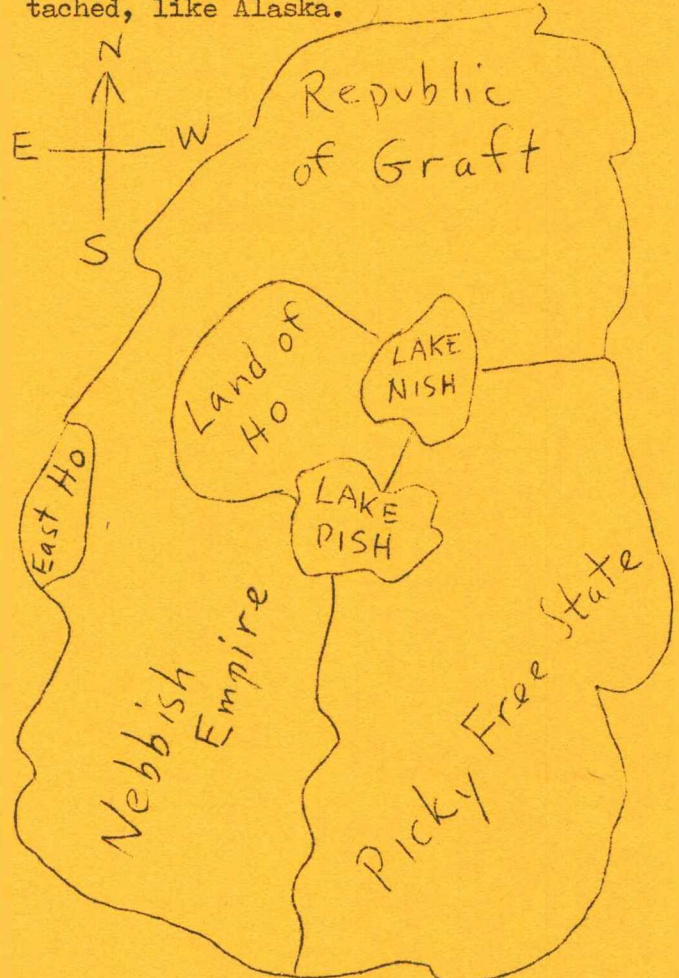 tached, like Alaska.
N
E W
S
Republic
of Graft
Land of
Ho
LAKE
NISH
East Ho
LAKE
PISH
Nebbish
Empire
Picky Free State